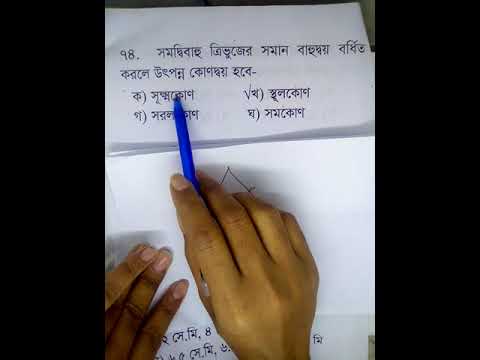 ৭৪. সমদ্বিবাহু ত্রিভুজের সমান বাহুদ্বয় বর্ধিত
করলে উৎপন্ন কোণদ্বয় হবে-
ক) সূক্ষ্মকোণ √খ) স্থূলকোণ
গ) সরলকোণ ঘ) সমকোণ
২ সে.মি, ৪
৬.৫ সে.মি, ৬. মি